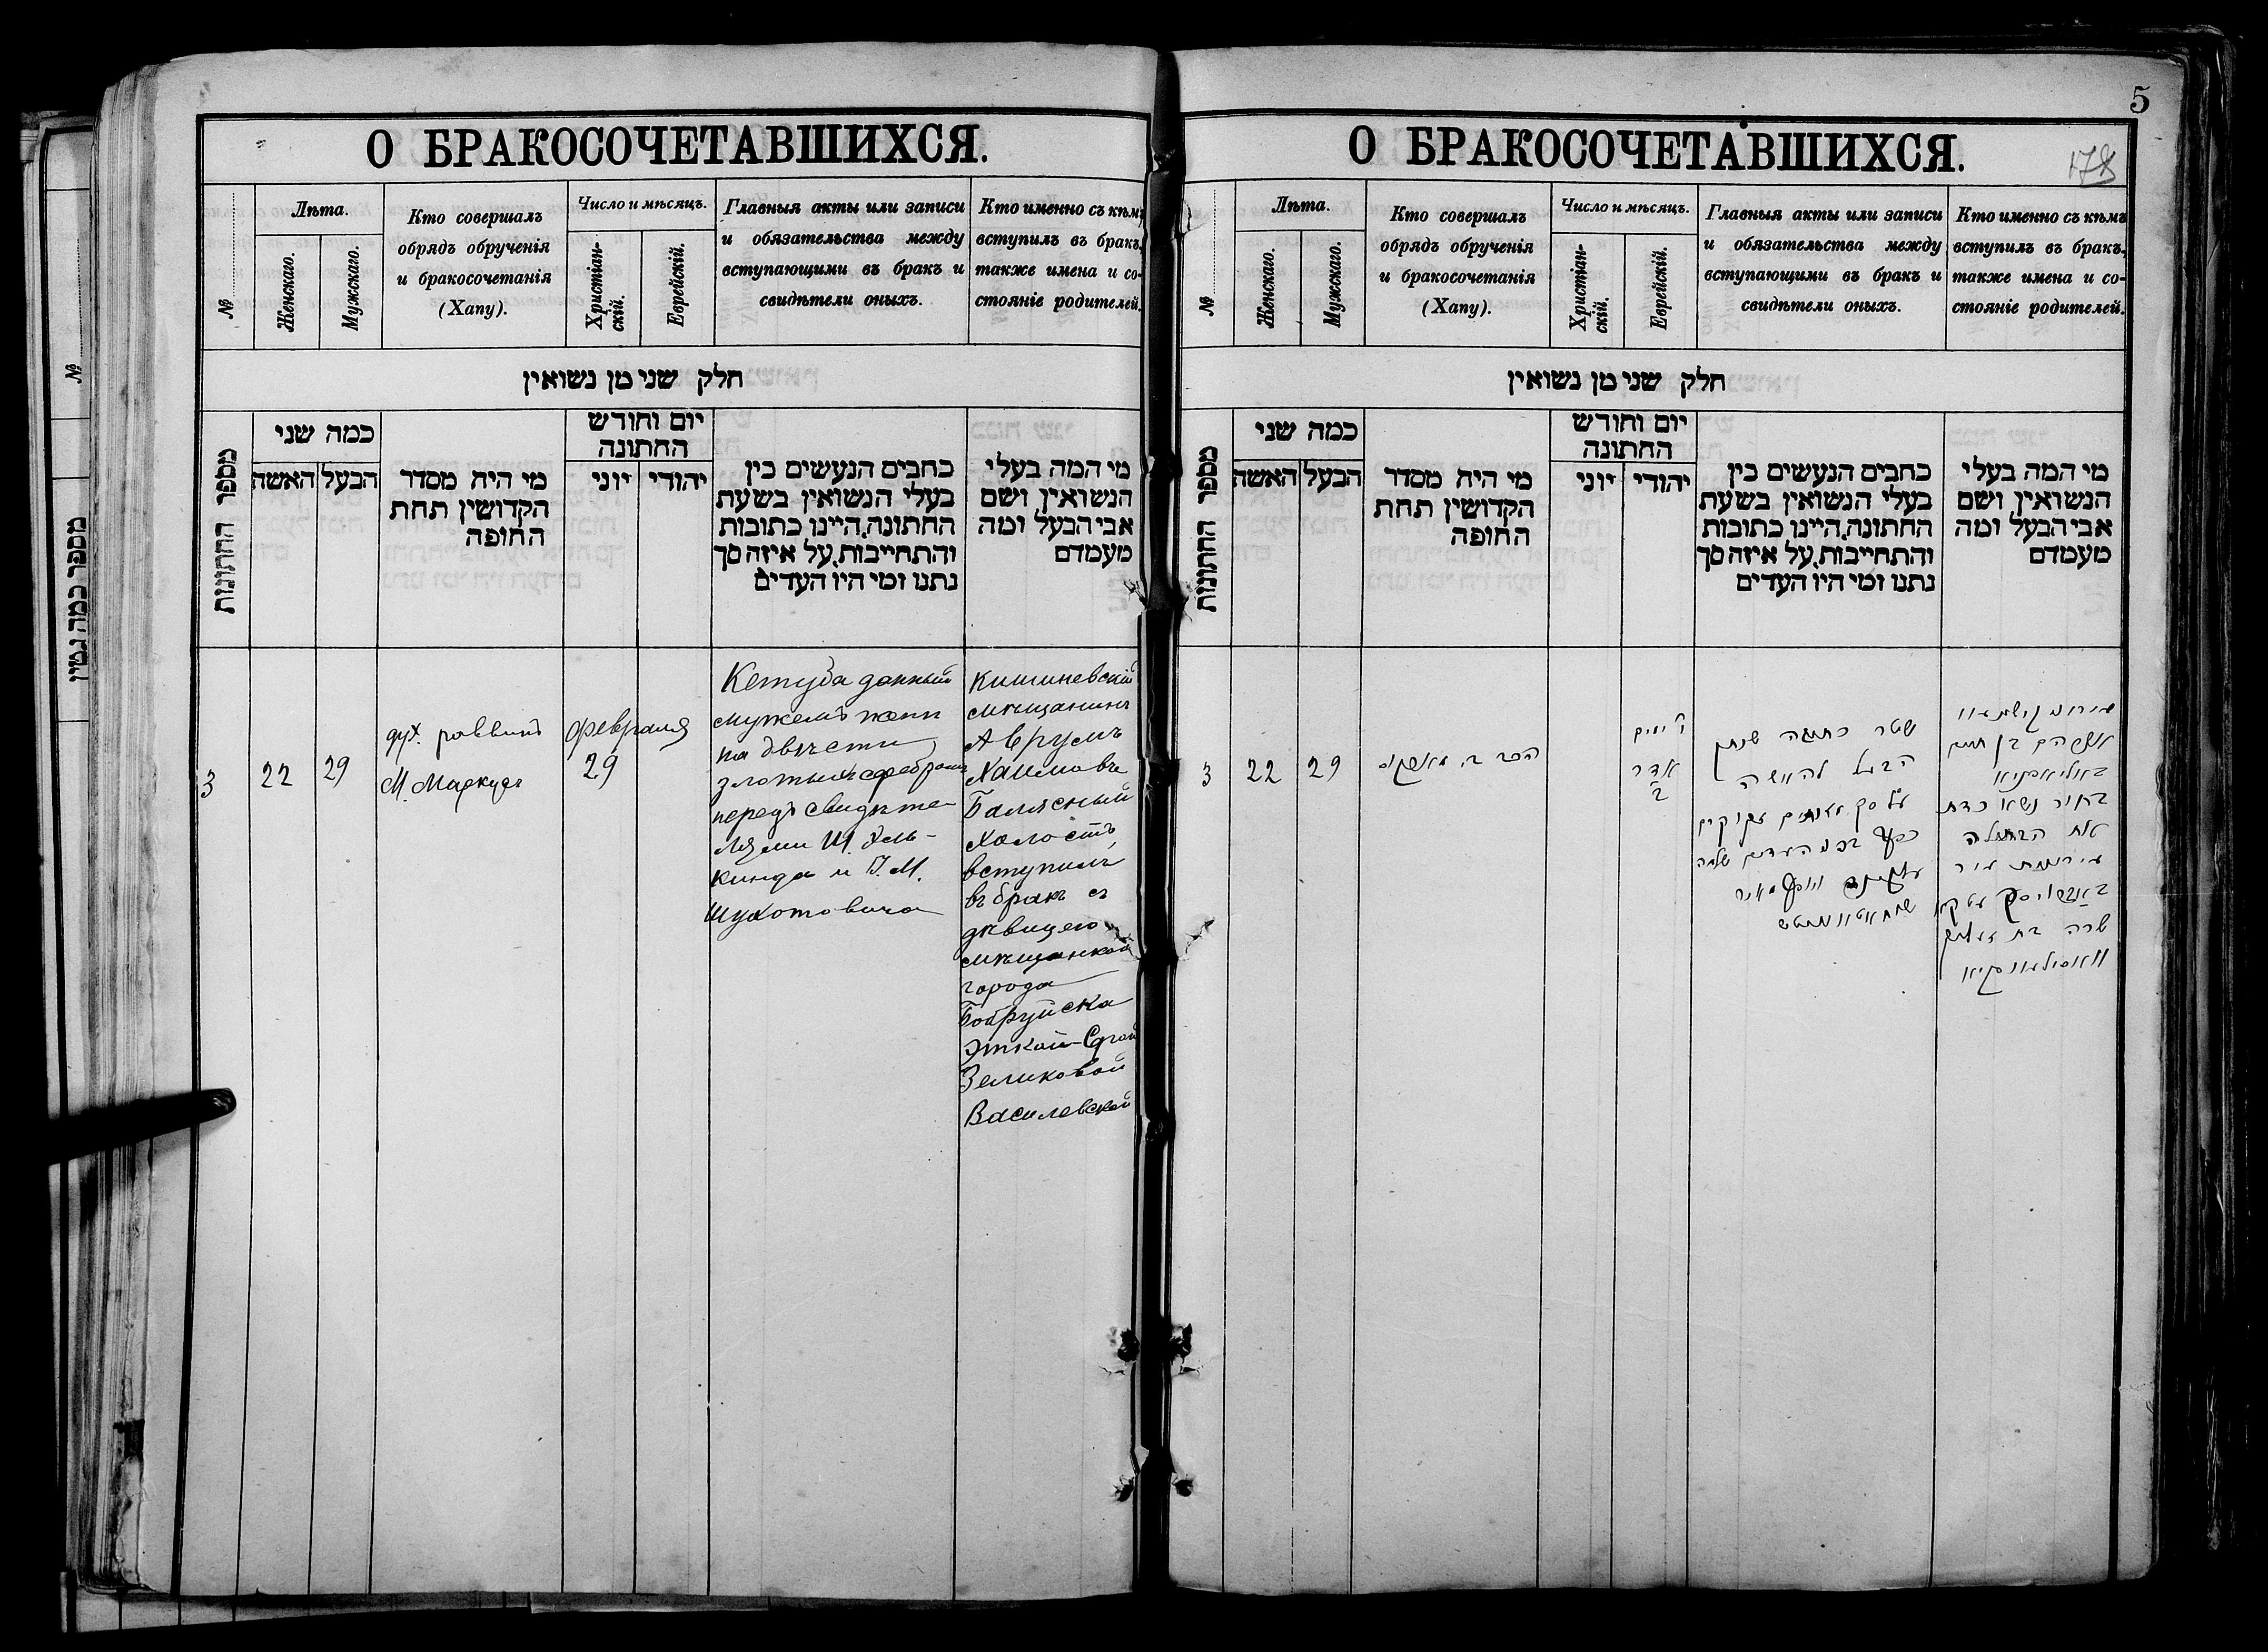 О БРАКОСОЧЕТАВШИХСЯ.
№
Лѣта.
Женскаго.
Мужскаго.
Кто совершалъ
обрядъ обрученія
и бракосочетанія
(Хапу).
Число и мѣсяцъ.
Христіан-
скій.
Еврейскій.
Главныя акты или записи
и обязательства между
вступающими въ бракъ и
свидѣтели оныхъ.
Кто именно съ кѣмъ
вступилъ въ бракъ,
также имена и со-
стояніе родителей.
חלק שני מן נשואין
מספר החתונות
כמה שני
הבעל האשה
מי היה מסדר
הקדושין תחת
החופה
יום וחודש
החתונה
יהודי יוני
כתבים הנעשים בין
בעלי הנשואין בשעת
החתונה, היינו כתובות
והתחייבות, על איזה סך
נתנו ומי היו העדים
מי המה בעלי
הנשואין ושם
אבי הבעל ומה
מעמדם
3
22
29
дух. раввинъ
М. Маркусъ
февраля
29
Кетуба данный
мужемъ жене
на двѣсти
злотыхъ серебромъ
передъ свидѣте-
лями Ш. Эль-
кинда и І. М.
Шухотовича
Кишиневскій
мѣщанинъ
Аврумъ
Хаимовъ
Балясный
холостъ,
вступилъ
въ бракъ съ
дѣвицею
мѣщанкой
города
Бобруйска
Эткой-Срой
Зеликовой
Василевской
5
178
О БРАКОСОЧЕТАВШИХСЯ.
№
Лѣта.
Женскаго.
Мужскаго.
Кто совершалъ
обрядъ обрученія
и бракосочетанія
(Хапу).
Число и мѣсяцъ.
Христіан-
скій.
Еврейскій.
Главныя акты или записи
и обязательства между
вступающими въ бракъ и
свидѣтели оныхъ.
Кто именно съ кѣмъ
вступилъ въ бракъ,
также имена и со-
стояніе родителей.
חלק שני מן נשואין
מספר החתונות
כמה שני
הבעל האשה
מי היה מסדר
הקדושין תחת
החופה
יום וחודש
החתונה
יהודי יוני
כתבים הנעשים בין
בעלי הנשואין בשעת
החתונה, היינו כתובות
והתחייבות, על איזה סך
נתנו ומי היו העדים
מי המה בעלי
הנשואין ושם
אבי הבעל ומה
מעמדם
3
22
29
הרב מ. מארקוס
אדר
שטר כתובה שנתן
הבעל להאשה
על סך מאתים זקוקין
כסף בפני העדים שלמה
עלקינד
אברהם בן חיים
באליאסניא
בחור נשא כדת
את הבתולה
עירונית עיר
באברויסק עטקא
שרה בת זעליק
וואסילעווסקיא
№
מספר כמה גטין